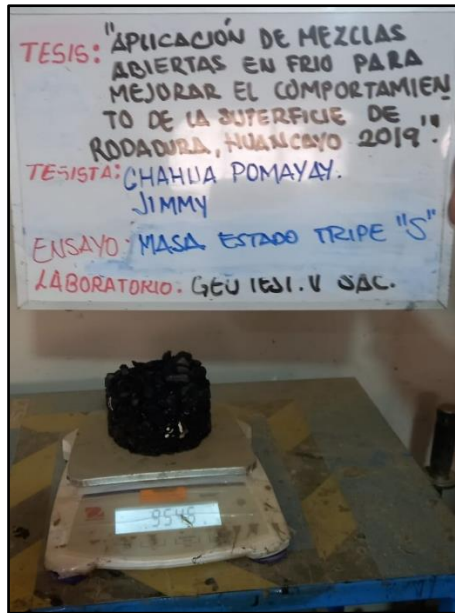 TESIS: "APLICACIÓN DE MEZCLAS
ABIERTAS EN FRIO PARA
MEJORAR EL COMPORTAMIEN
TO DE LA SUPERFICIE DE
RODADURA, HUANCAYO 2019".
TESISTA: CHAHUA POMAYAY.
JIMMY
ENSAYO: MASA ESTADO TRIPE "S"
LABORATORIO. GEO TEST. V SAC.